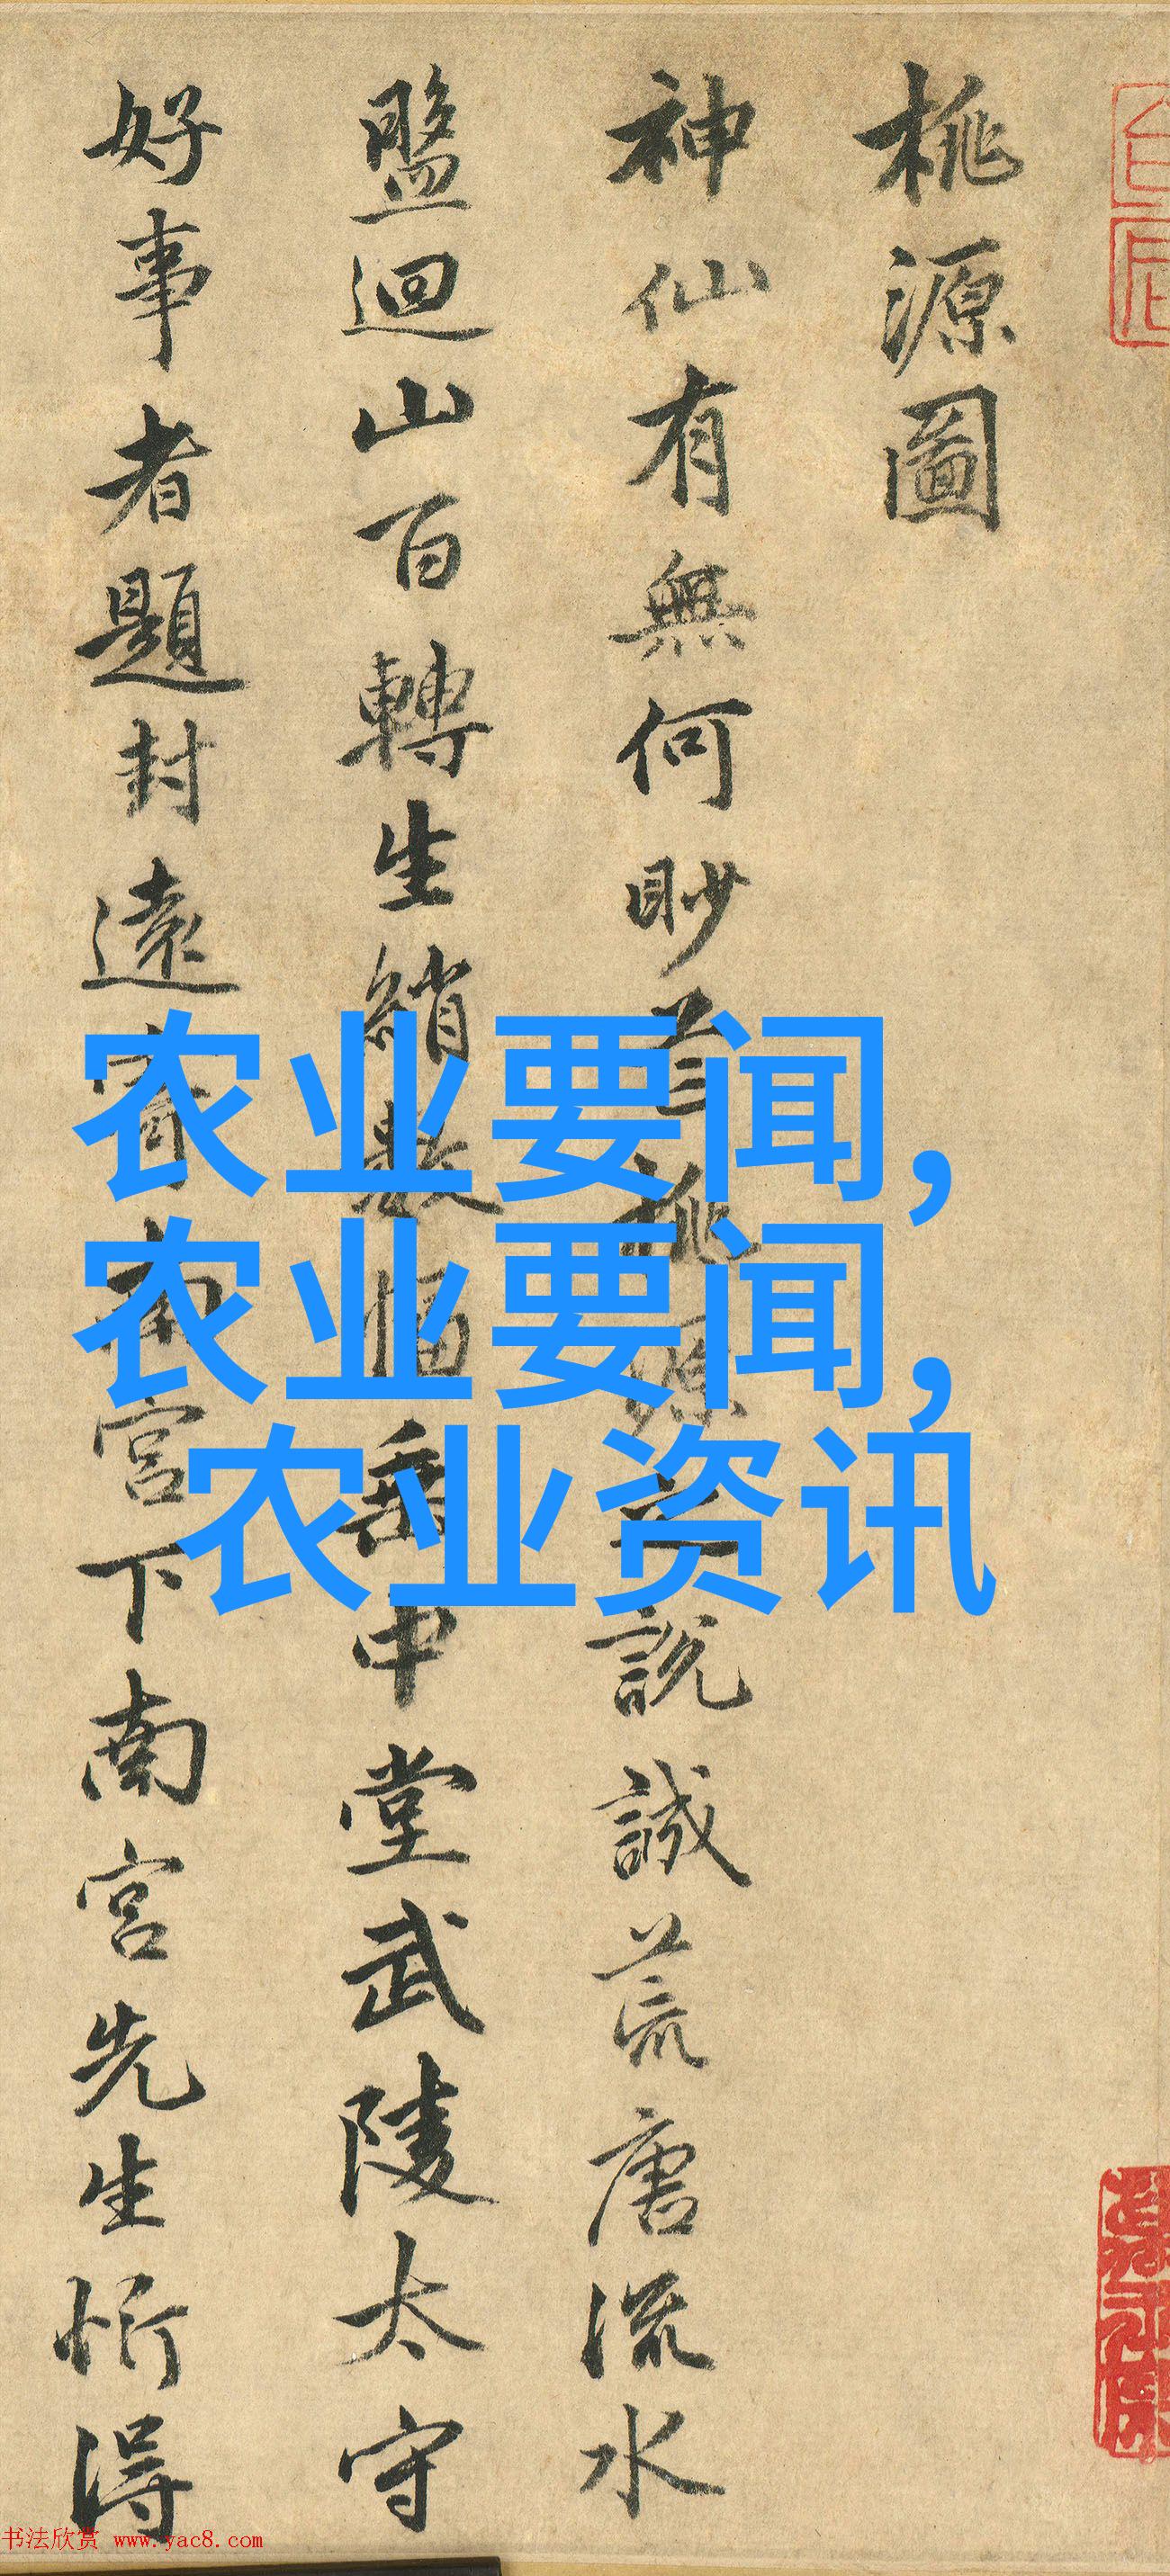 桃源圖
神仙有無何眇芒桃源之說誠荒唐流水
盤迴山百轉生綃數幅垂中堂武陵太守
好事者題封遠寄南宮下南宮先生忻得
农业要闻,
农业要闻,
农业资讯
书法欣赏 www.yac8.com